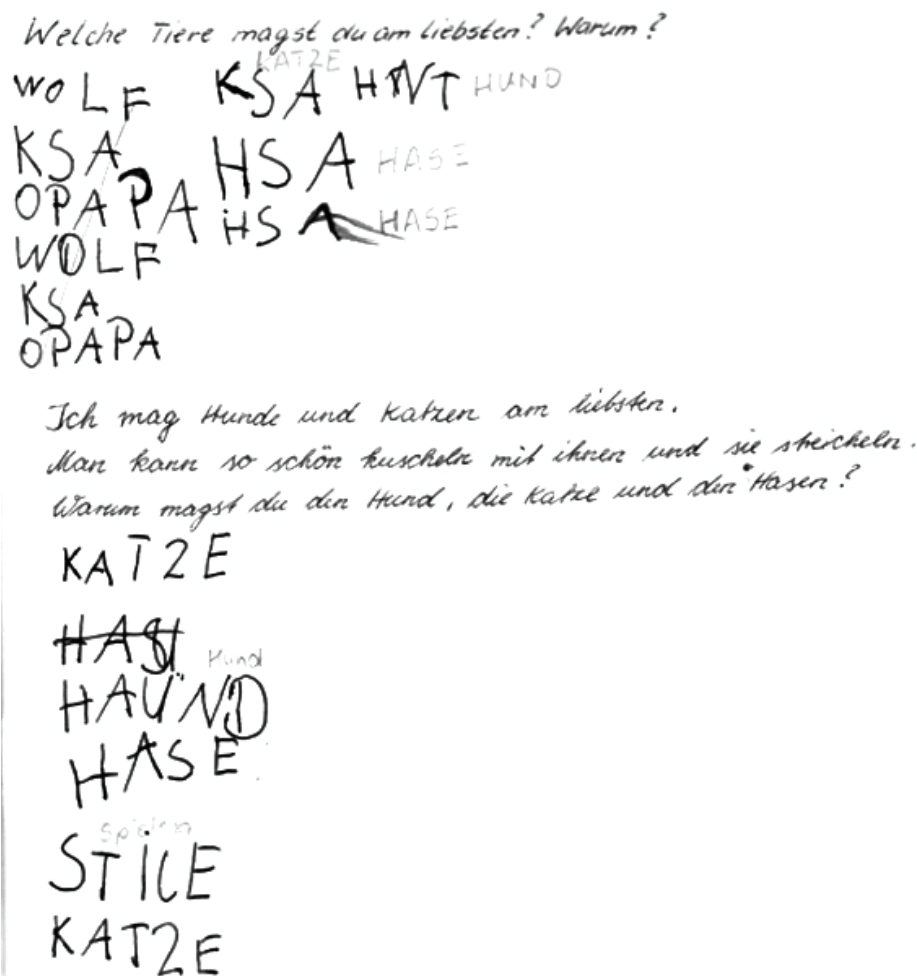 Welche Tiere magst du am liebsten? Warum?
KATZE
WOLF KSA HNT HUND
KSA HSA HASE
OPAPA HSA HASE
WOLF
KSA
OPAPA
Ich mag Hunde und Katzen am liebsten.
Man kann so schön kuscheln mit ihnen und sie streicheln.
Warum magst du den Hund, die Katze und den Hasen?
KATZE
Hund
HAUND
HASE
Spielen
STILE
KATZE